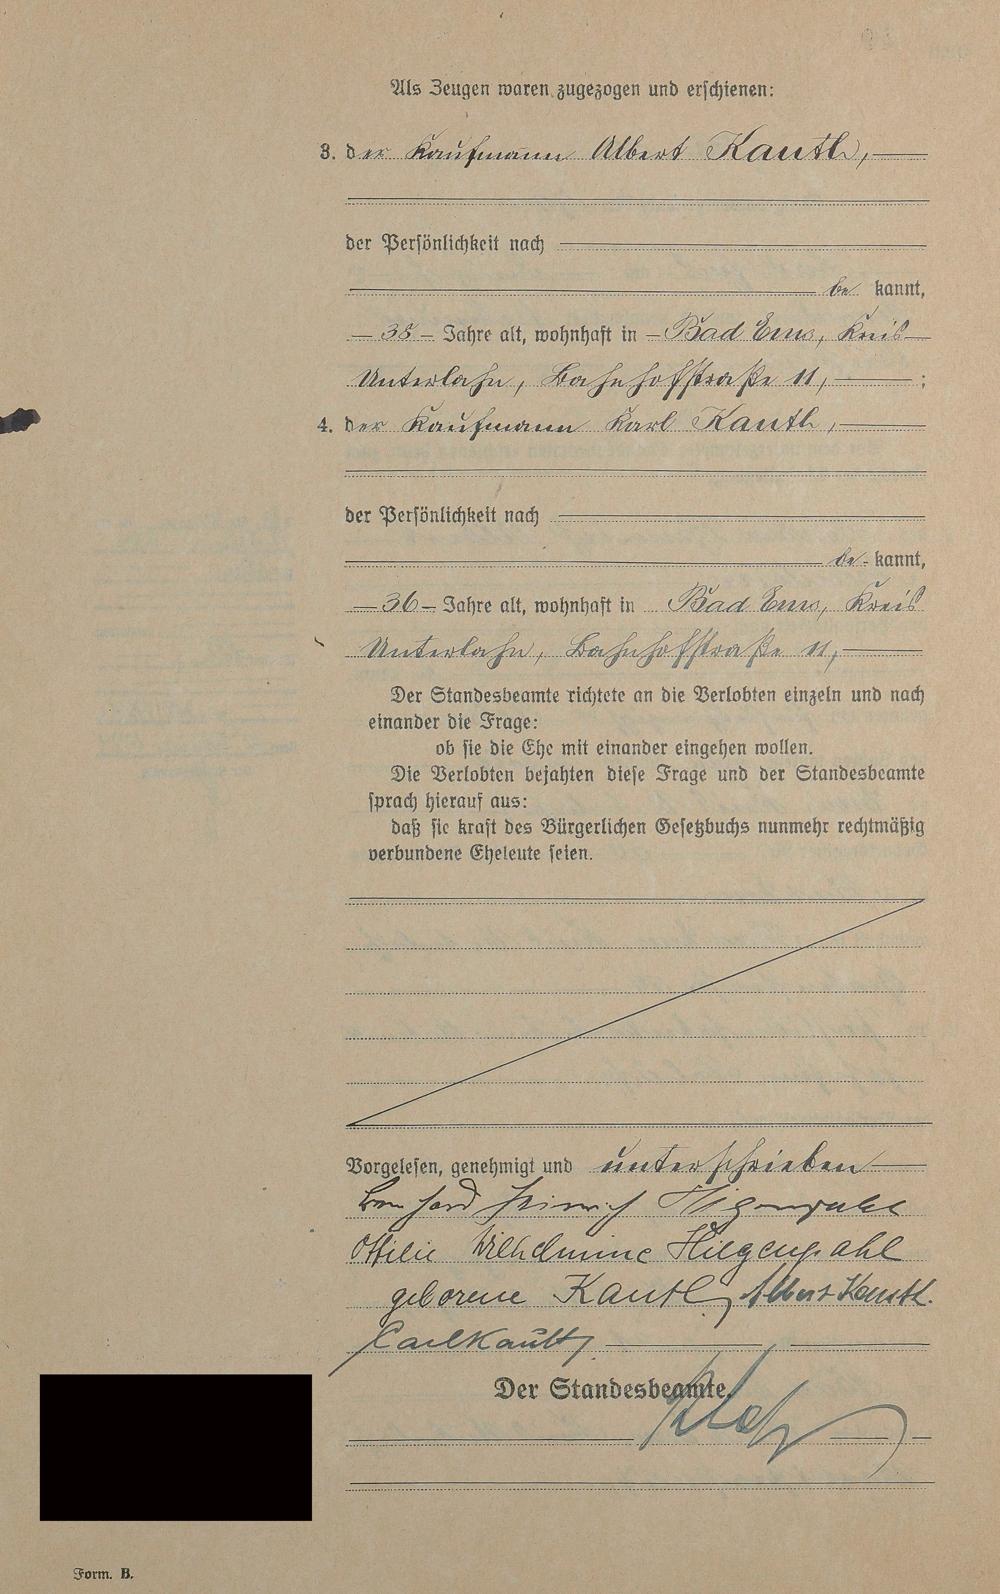 Als Zeugen waren zugezogen und erschienen:
3. der Kaufmann Albert Kauth,
der Persönlichkeit nach
be kannt,
38 Jahre alt, wohnhaft in Bad Ems, Kreis
Unterlahn, Bahnhofstraße 11, ;
4. der Kaufmann Karl Kauth,
der Persönlichkeit nach
be kannt,
36 Jahre alt, wohnhaft in Bad Ems, Kreis
Unterlahn, Bahnhofstraße 11,
Der Standesbeamte richtete an die Verlobten einzeln und nach
einander die Frage:
ob sie die Ehe mit einander eingehen wollen.
Die Verlobten bejahten diese Frage und der Standesbeamte
sprach hierauf aus:
daß sie kraft des Bürgerlichen Gesetzbuchs nunmehr rechtmäßig
verbundene Eheleute seien.
Vorgelesen, genehmigt und unterschrieben
Heinrich Hilgenpahl
Ottilie Wilhelmine Hilgenpahl
geborene Kauth, Albert Kauth.
Carl Kauth
Der Standesbeamte.
Form. B.